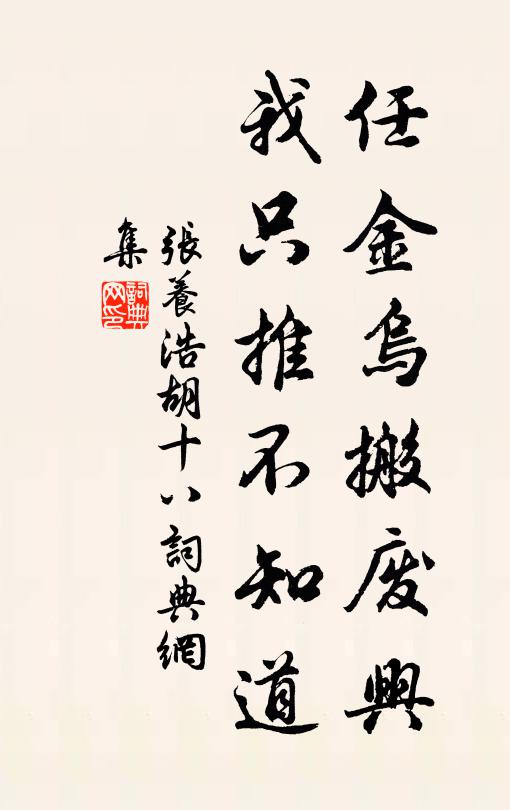 任金烏搬废興
我只推不知道
張養浩胡十八詞典網
集
詞典
网印